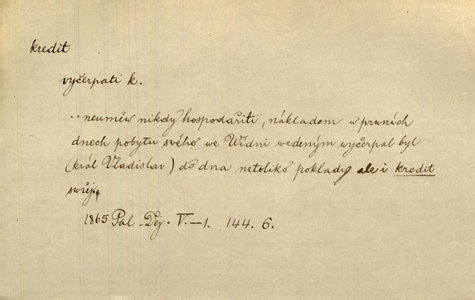 kredit
vyčerpati k.
..neuměw nikdy hospodařiti, nákladem w prwních
dnech pobytu swého we Wídni wedeným wyčerpal byl
(král Vladislav) do dna netoliko poklady ale i kredit
swůj
1865 Pal. Děj. V.–1. 144. 6.